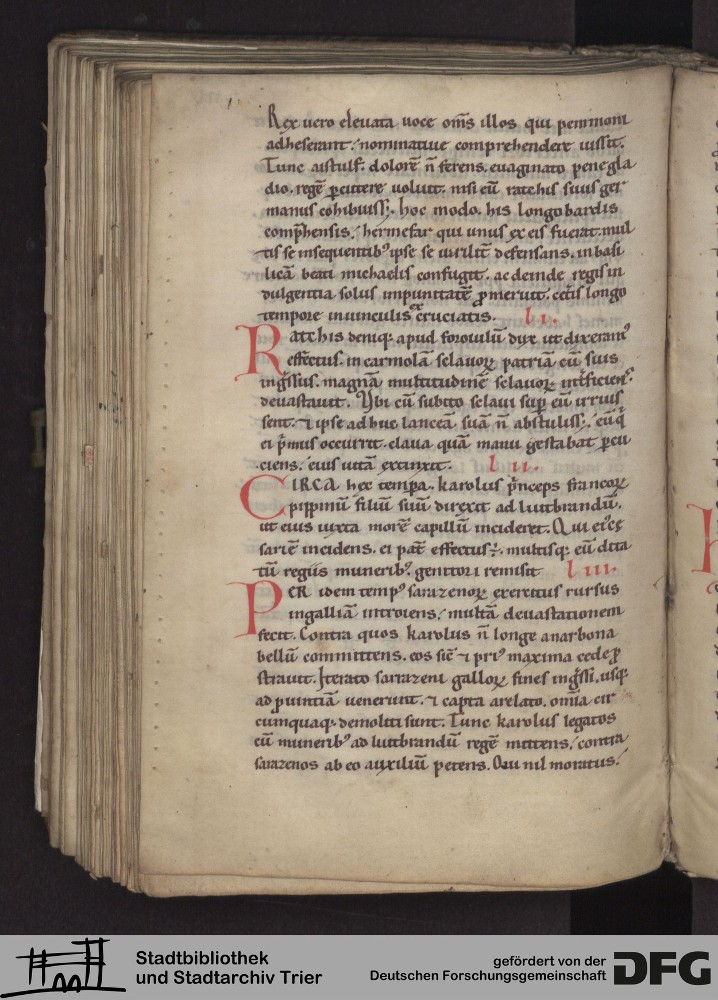 Rex uero eleuata uoce om̄s illos qui pemmoni
adheserant. nominatiue comprehendere iussit.
Tunc aistulf. dolorē n̄ ferens. euaginato pene gla
dio. regē ꝑcutere uoluit. nisi eū ratchis suus ger
manus cohibuiss&. hoc modo. his longobardis
comp̄hensis. hermefar qui unus ex eis fuerat. mul
tis se insequentibꝰ ipse se uirilit̄ defensans. in basi
licā beati michaelis confugit. ac deinde regis in
dulgentia solus impunitatē ꝓmeruit. cet̄is longo
tempore in uinculis excruciatis. li.
Ratchis deniq; apud foroiulū dux ut dixeramꝰ
effectus. in carmolā sclauoꝝ patriā cū suis
inḡssus. magnā multitudinē sclauoꝝ int̄ficiens.
deuastauit. Ubi cū subito sclaui sup̄ eū irruis
sent. & ipse adhuc lanceā suā n̄ abstuliss&. eū q̄
ei p̄mus occurrit. claua quā manu gestabat ꝑcu
ciens. eius uitā extinxit. lii.
CIRCA hec temp̄a. karolus p̄nceps francoꝝ
pippinū filiū suū direxit ad liutbrandū.
ut eius iuxta morē capillū incideret. Qui ei cę
sariē incidens. ei pat̄ effectus ÷. multisq; eū dita
tū regiis muneribꝰ. genitori remisit liii.
PER idem tempꝰ sarazenoꝝ exercitus rursus
in galliā introiens. multā deuastationem
fecit. Contra quos karolus n̄ longe a narbona
bellū committens. eos sic̄ & priꝰ maxima cede ꝓ
strauit. Iterato sarrazeni galloꝝ fines inḡssi. usq;
ad ꝓuintiā uenerunt. & capta arelato. om̄ia cir
cumquaq; demoliti sunt. Tunc karolus legatos
cū muneribꝰ ad liutbrandū regē mittens. contra
sarazenos ab eo auxiliū petens. Qui nil moratus.
Stadtbibliothek
und Stadtarchiv Trier
gefördert von der
Deutschen Forschungsgemeinschaft
DFG